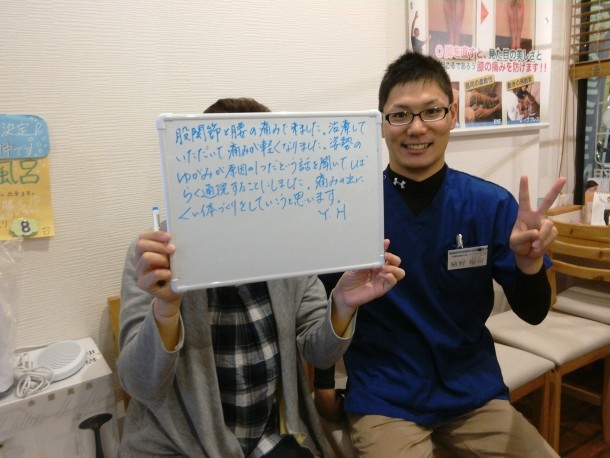 股関節と腰の痛みで来ました。治療して
いただいて痛みが軽くなりました。姿勢の
ゆがみが原因の1つだという話を聞いてしば
らく通院することにしました。痛みの出に
くい体づくりをしていこうと思います。
Y H
見た目の美しさと
膝の痛みを防げます!!
決定
風呂
8